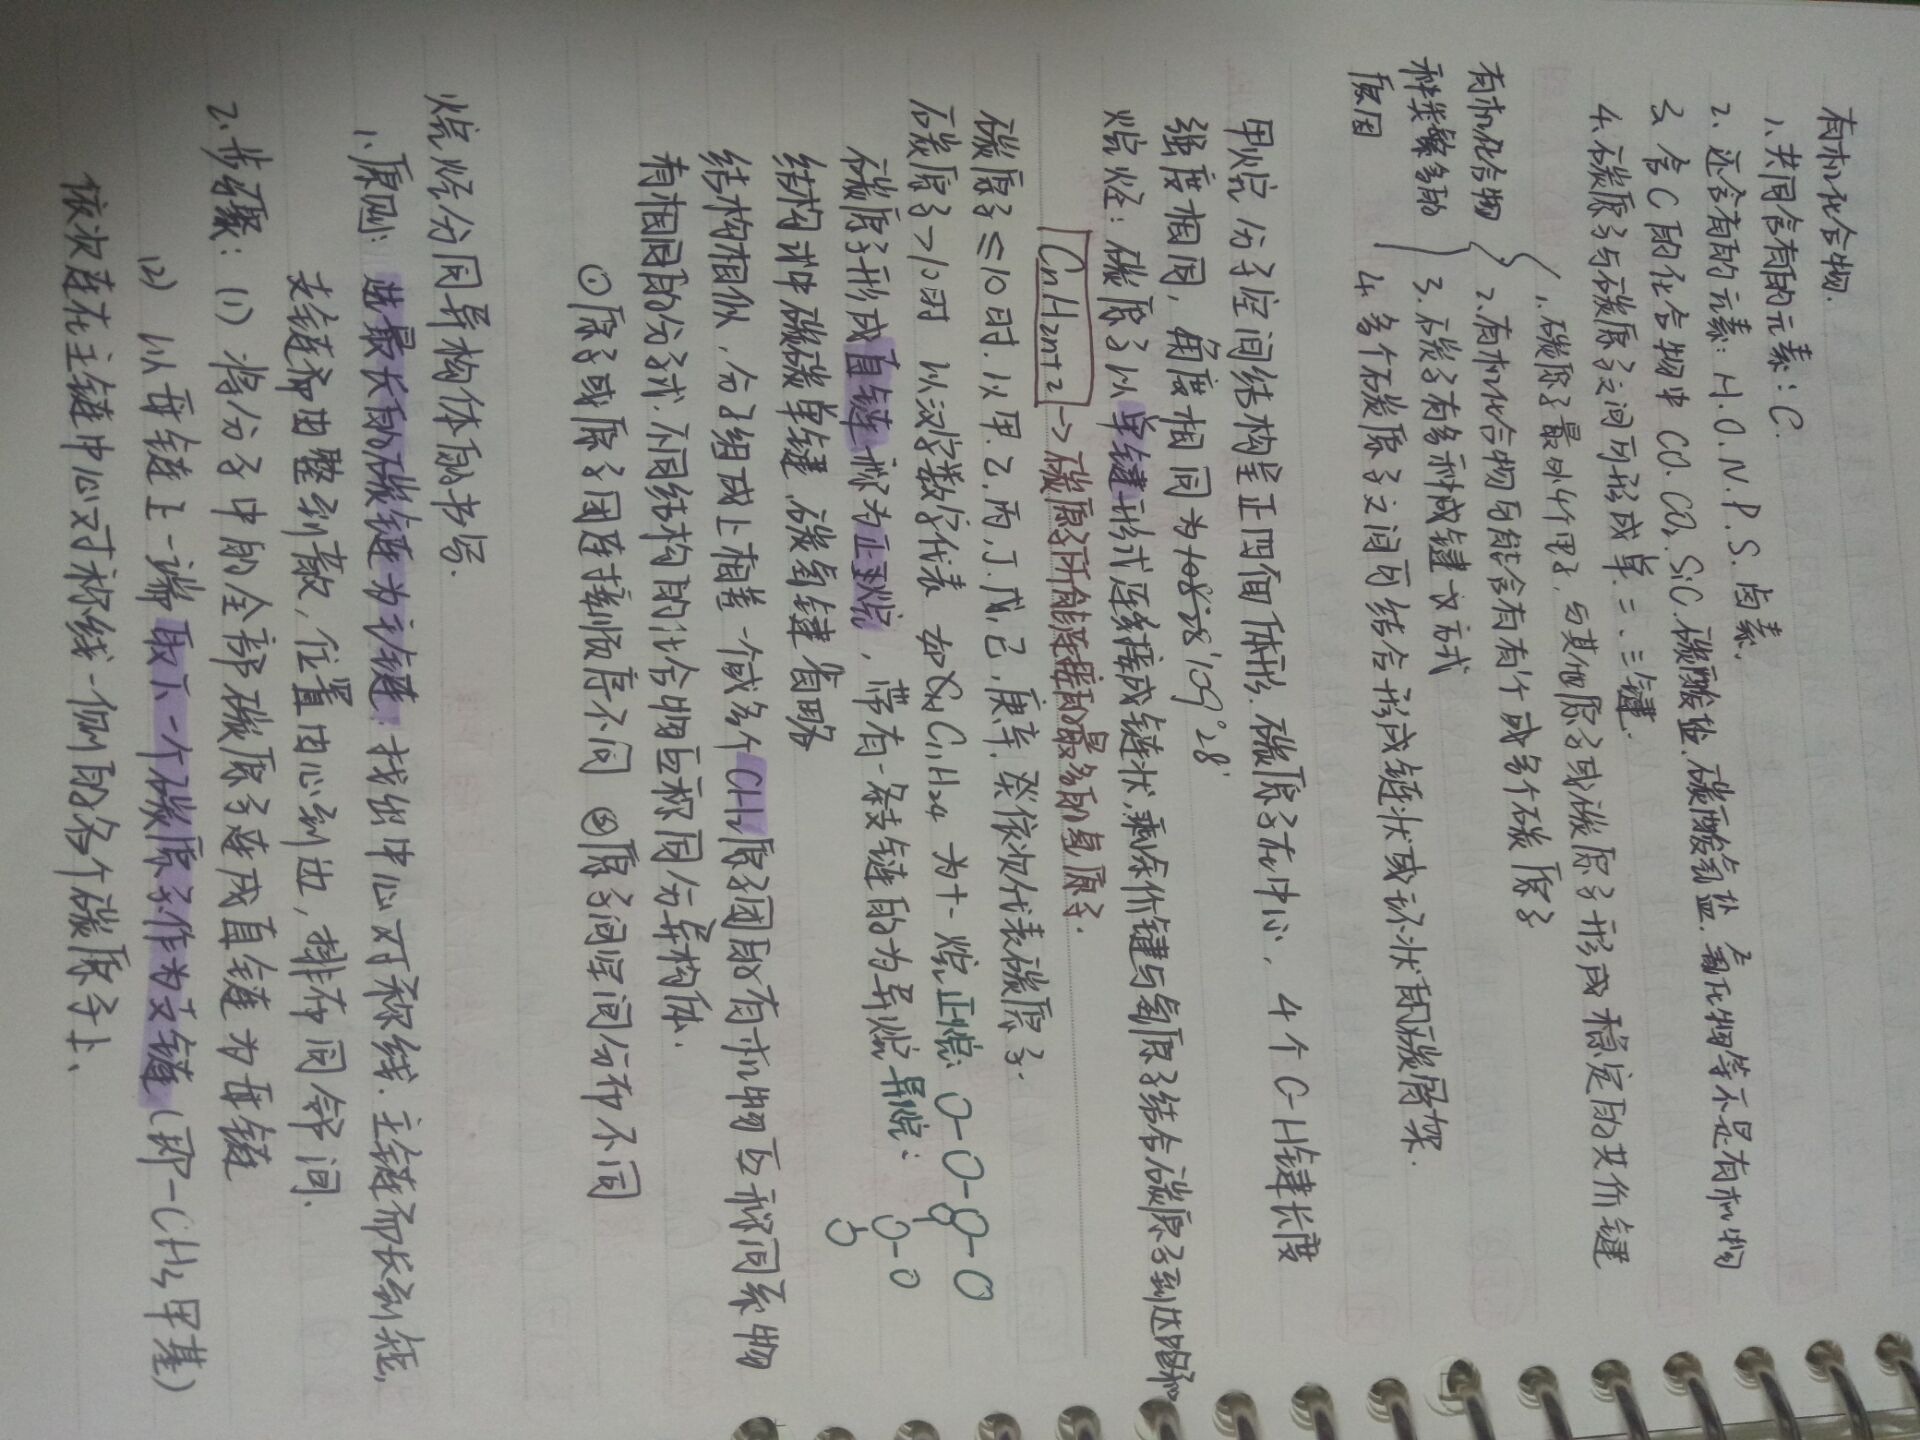 有机化合物.
1、共同含有的元素：C.
2、还含有的元素：H.O.N.P.S.卤素.
3、含C的化合物中 CO.CO₂.SiC.碳酸盐.碳酸氢盐.氰化物等不是有机物
4、碳原子与碳原子之间可形成单.二、三键.
有机化合物种类繁多的原因
1、碳原子最外4个电子，与其他原子或碳原子形成稳定的共价键
2、有机化合物可能含有有1个或多个碳原子
3、碳原子有多种成键方式
4、多个碳原子之间可结合形成链状或环状的碳骨架.
甲烷分子空间结构呈正四面体形.碳原子在中心，4个C-H键长度
强度相同，角度相同为109°28′
烷烃：碳原子以单键形式连接成链状，剩余价键与氢原子结合碳原子到达饱和
CnH2n+2 → 碳原子所能连接的最多的氢原子.
碳原子≤10时.以甲.乙.丙.丁.戊.己.庚.辛.癸依次代表碳原子.
碳原子>10时 以汉字数字代表 如 C₁₁H₂₄ 为十一烷 正烷：O-O-O-O
碳原子形成直链称为正烷，带有一条支链的为异烷 异烷：
结构式中碳碳单键.碳氢键省略
结构相似，分子组成上相差一个或多个CH₂原子团的有机物互称同系物
有相同的分子式.不同结构的化合物互称同分异构体.
①原子或原子团连接顺序不同 ②原子间空间分布不同
烷烃分同异构体的书写.
1、原则：选最长的碳链为主链：找出中心对称线.主链由长到短，
支链都由整到散，位置由心到边，排布同邻间.
2、步骤：(1) 将分子中的全部碳原子连成直链为母链
(2) 以母链上一端取下一个碳原子作为支链（即-CH₃甲基）
依次连在主链中心对称线一侧的各个碳原子上、